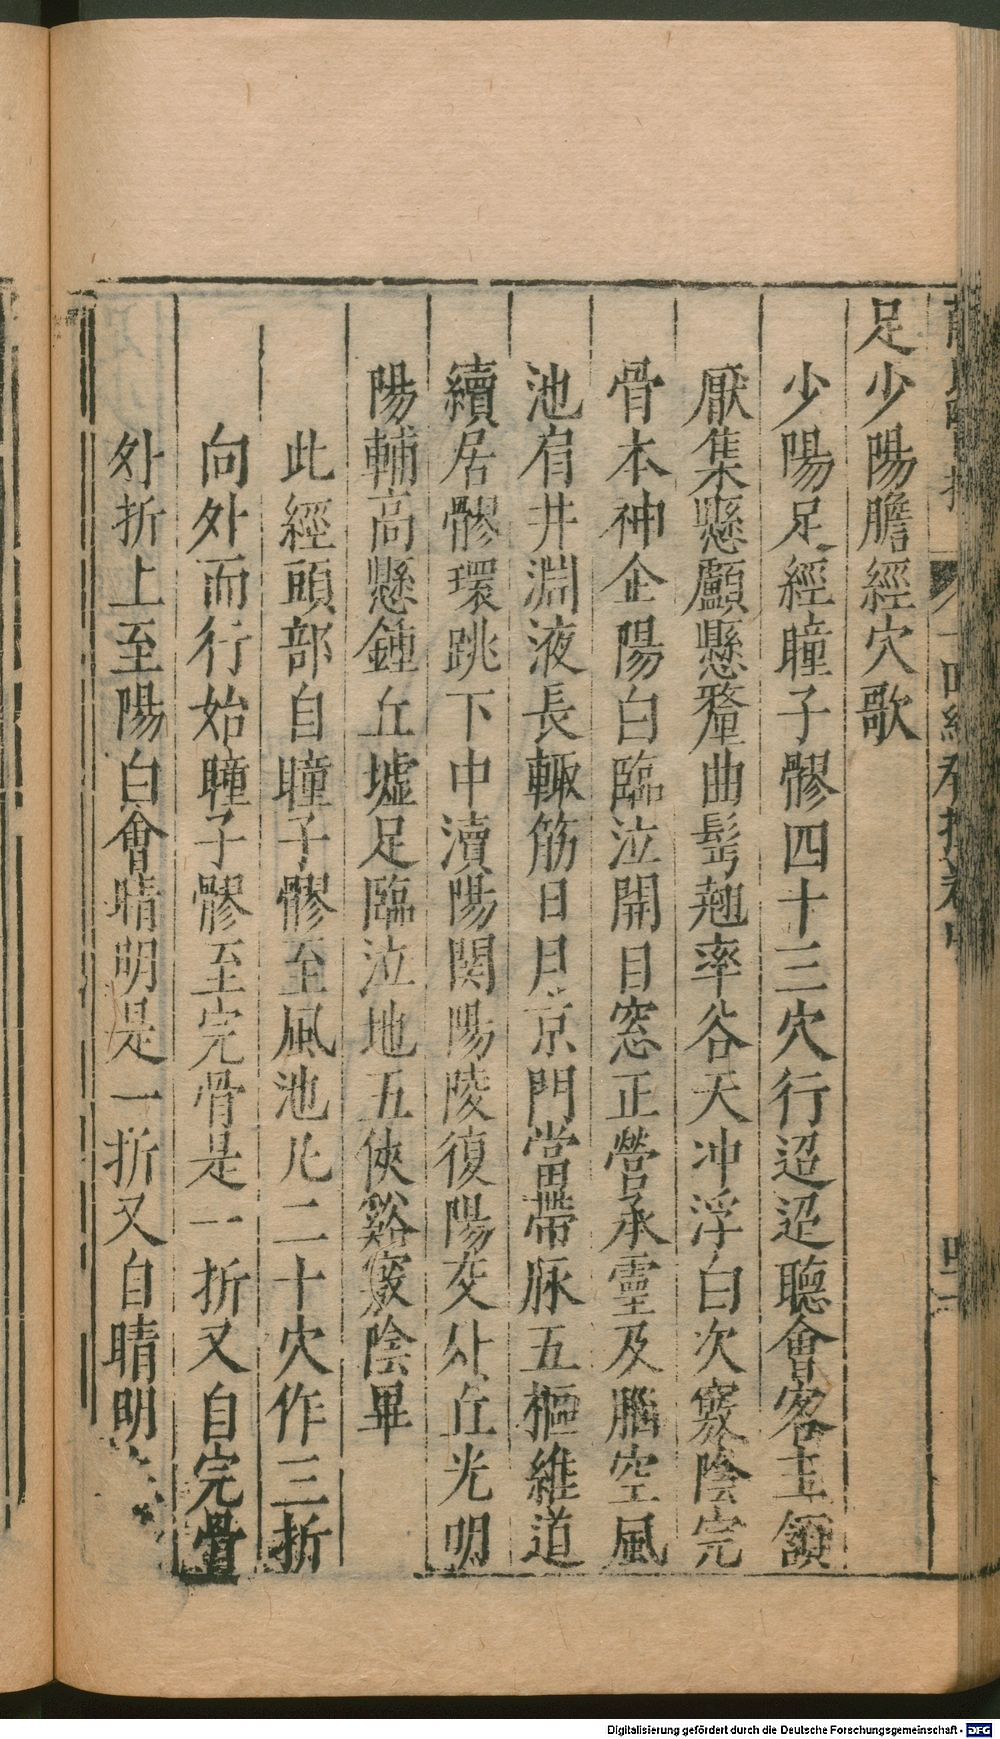 足少陽膽經穴歌
少陽足經瞳子髎四十三穴行迢迢聽會客主頷
厭集懸顱懸釐曲髩翹率谷天冲浮白次竅陰完
骨本神企陽白臨泣開目窓正營承靈及腦空風
池肩井淵液長輙筋日月京門當帶脉五樞維道
續居髎環跳下中瀆陽関陽陵復陽交外丘光明
陽輔高懸鍾丘墟足臨泣地五俠谿竅陰畢
此經頭部自瞳子髎至風池凡二十穴作三折
向外而行始瞳子髎至完骨是一折又自完骨
外折上至陽白會睛明是一折又自睛明
Digitalisierung gefördert durch die Deutsche Forschungsgemeinschaft - DFG